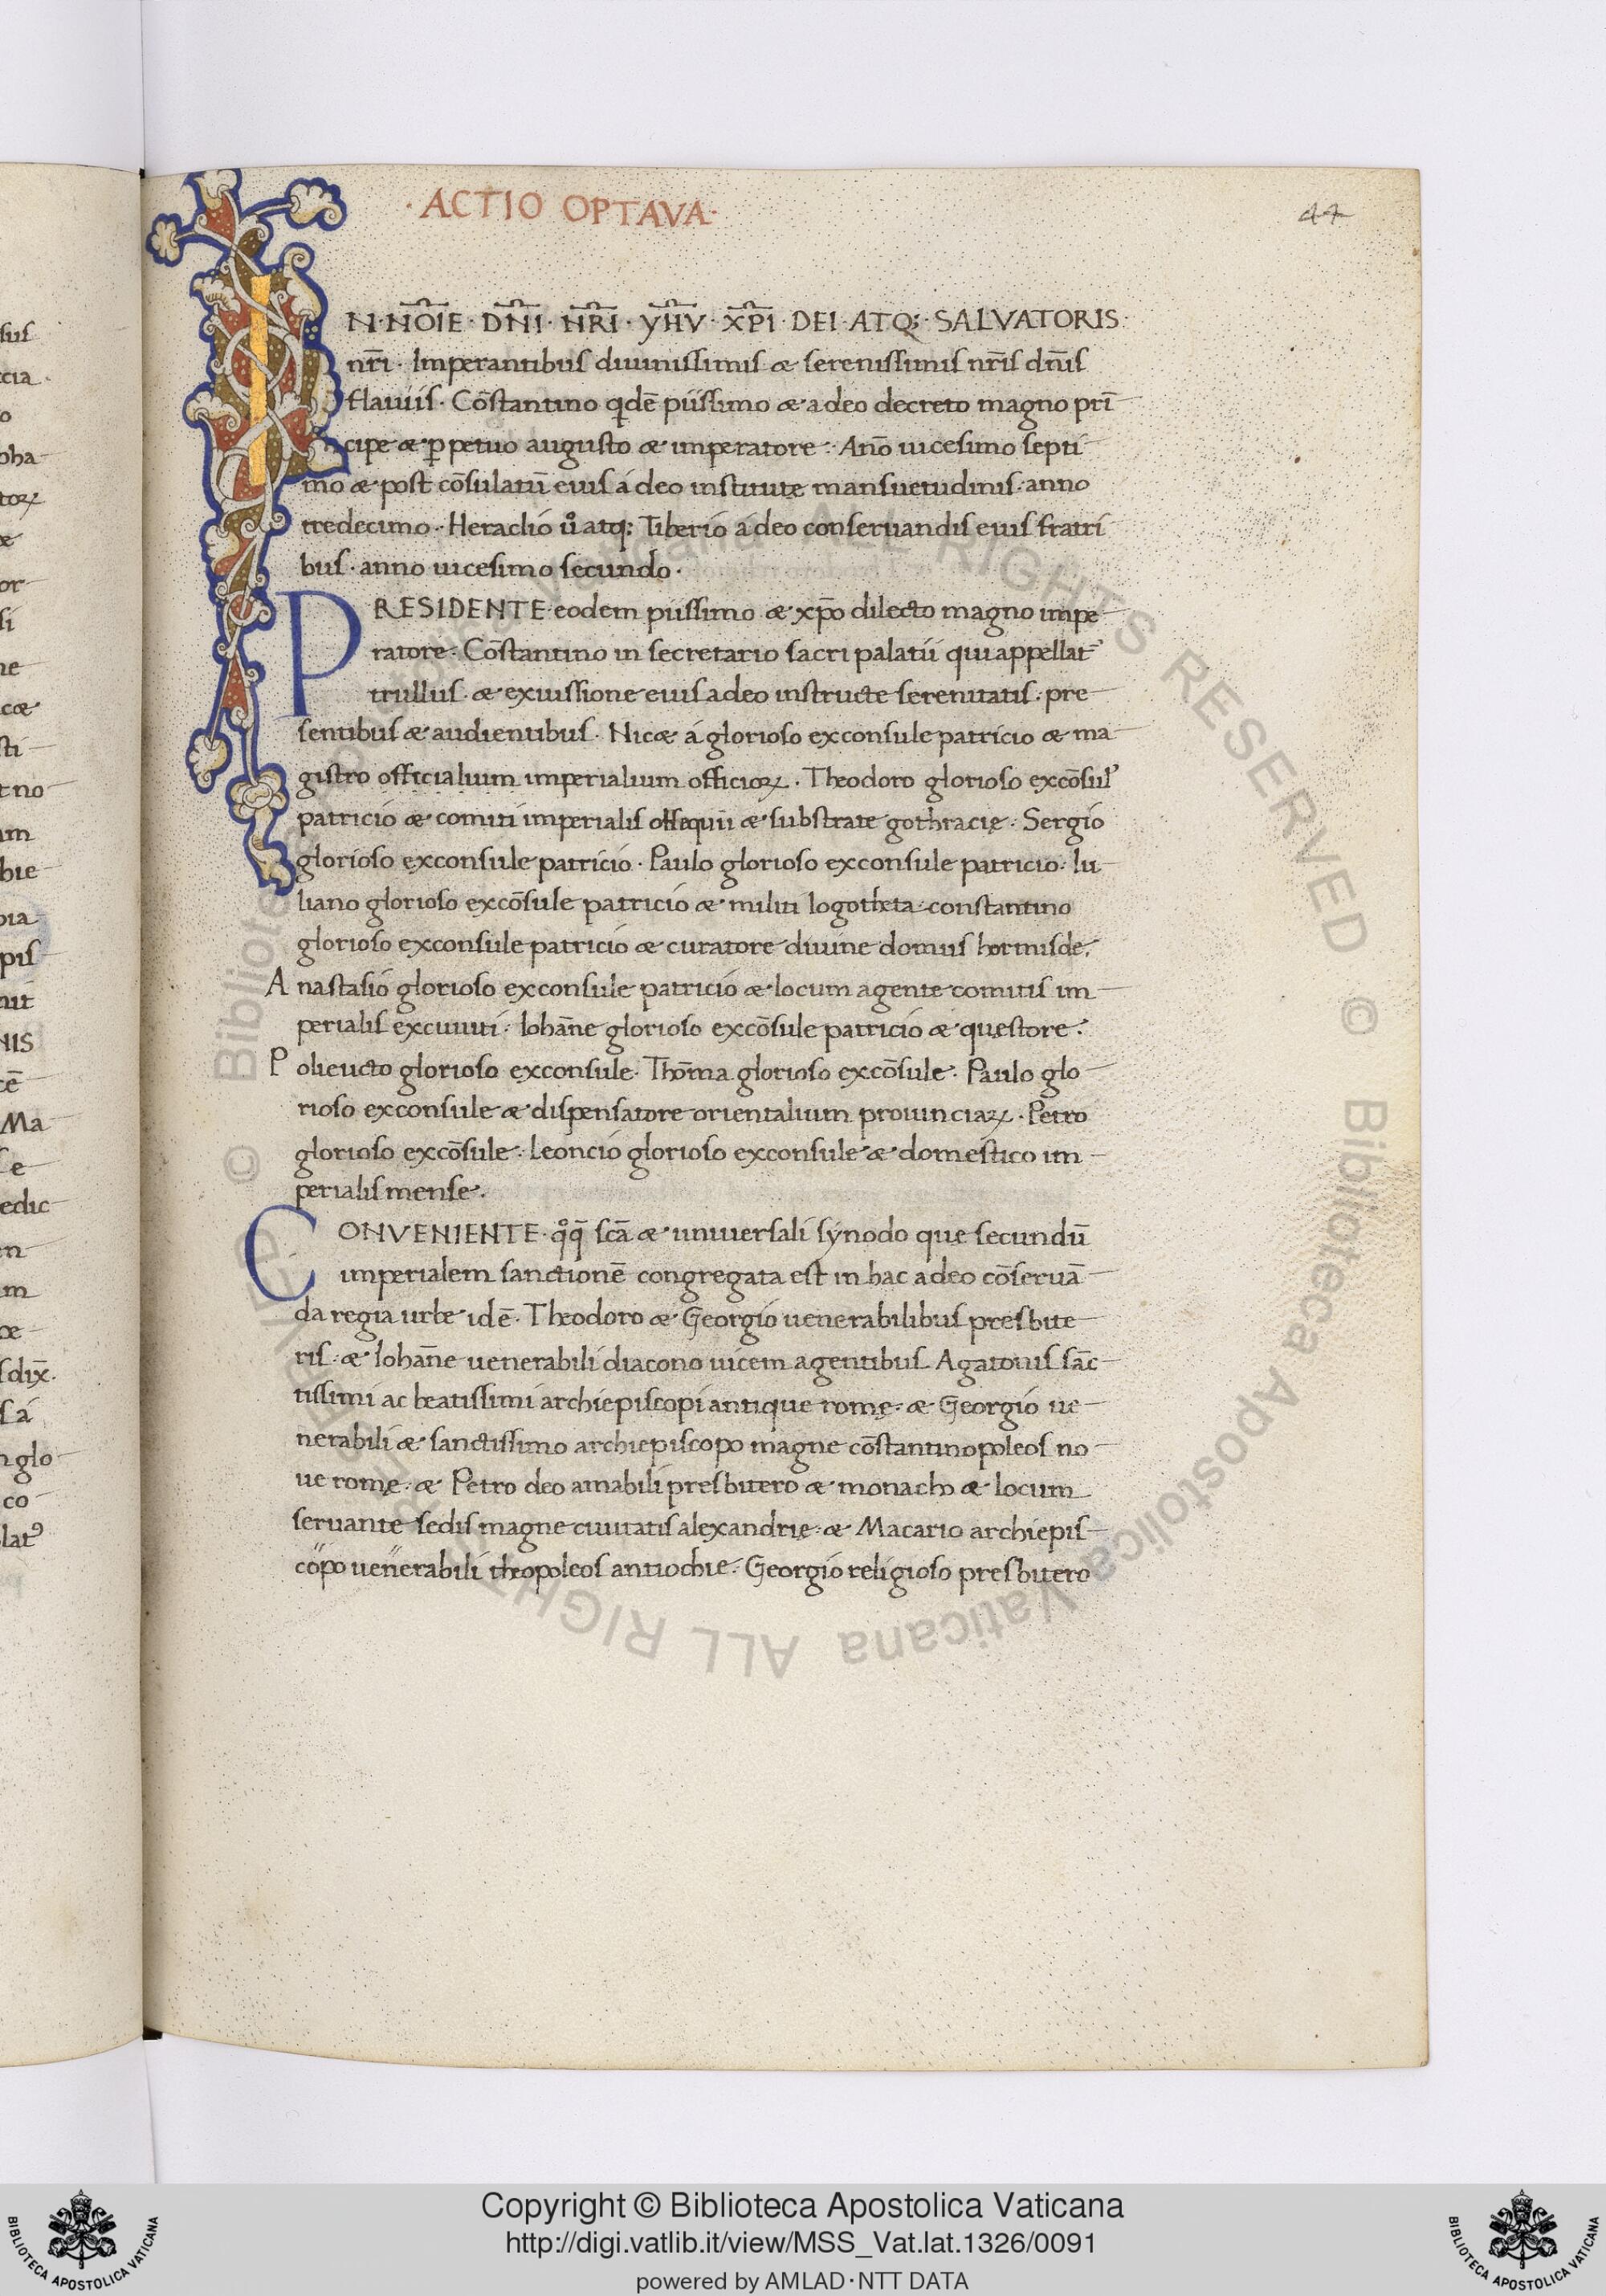 ·ACTIO OPTAVA·
44
IN·NOĪE·DN̄I·NR̄I·YH̄V·XP̄I·DEI·ATQ;·SALVATORIS·
nr̄i· Imperantibus diuinissimis æ serenissimis nr̄is dn̄is
flauiis· Cōstantino qdē piissimo æ adeo decreto magno prī
cipe æ ꝑpetuo augusto æ imperatore· Ano̅ uicesimo septi
mo æ post cōsulatū eius á deo institute mansuetudinis· anno
tredecimo· Heraclió uͦ atq; Tiberió á deo conseruandis eius fratri
bus· anno uicesimo secundo·
PRESIDENTE eodem piissimo æ xp̄o dilecto magno impe
ratore· Cōstantino in secretario sacri palatii qui appellat᷒
trullus· æ exiussione eius adeo instructe serenitatis· pre
sentibus æ audientibus· Nicæ á glorioso exconsule patricio æ ma
gistro officialium imperialium officioꝝ· Theodoro glorioso excōsul'
patrició æ comiti imperialis obsequii æ substrate gothracię· Sergió
glorioso exconsule patrició· Paulo glorioso exconsule patricio· Iu
liano glorioso excōsule patrició æ militi logotheta constantino
glorioso exconsule patrició æ curatore diuine domus hormisde·
Anastasió glorioso exconsule patrició æ locum agente comitis im
perialis excuuiti· Iohāne glorioso excōsule patrició æ questore·
Polieucto glorioso exconsule· Thōma glorioso excōsule· Paulo glo
rioso exconsule æ dispensatore orientalium prouinciaꝝ· Petro
glorioso excōsule· Leonció glorioso exconsule æ domestico im
perialis mense·
CONVENIENTE·qͦq̄ scā æ uniuersali sýnodo que secundū
imperialem sanctionē congregata est in hac adeo cōseruā
da regia urbe idē· Theodoro æ Georgió uenerabilibus presbite
ris· æ Iohāne uenerabili diacono uicem agentibus Agatonis sāc
tissimi ac beatissimi archiepiscopi antique romę· æ Georgió ue
nerabili æ sanctissimo archiepiscopo magne cōstantinopoleos no
ue romę· æ Petro deo amabili presbitero æ monacho æ locum
seruante sedis magne ciuitatis alexandrię· æ Macario archiepis
copo uenerabili theopoleos antiochie· Georgió religioso presbitero
© Biblioteca Apostolica Vaticana ALL RIGHTS RESERVED © Biblioteca Apostolica Vaticana ALL RIGHTS RESERVED
Copyright © Biblioteca Apostolica Vaticana
http://digi.vatlib.it/view/MSS_Vat.lat.1326/0091
powered by AMLAD·NTT DATA
BIBLIOTECA APOSTOLICA VATICANA
BIBLIOTECA APOSTOLICA VATICANA